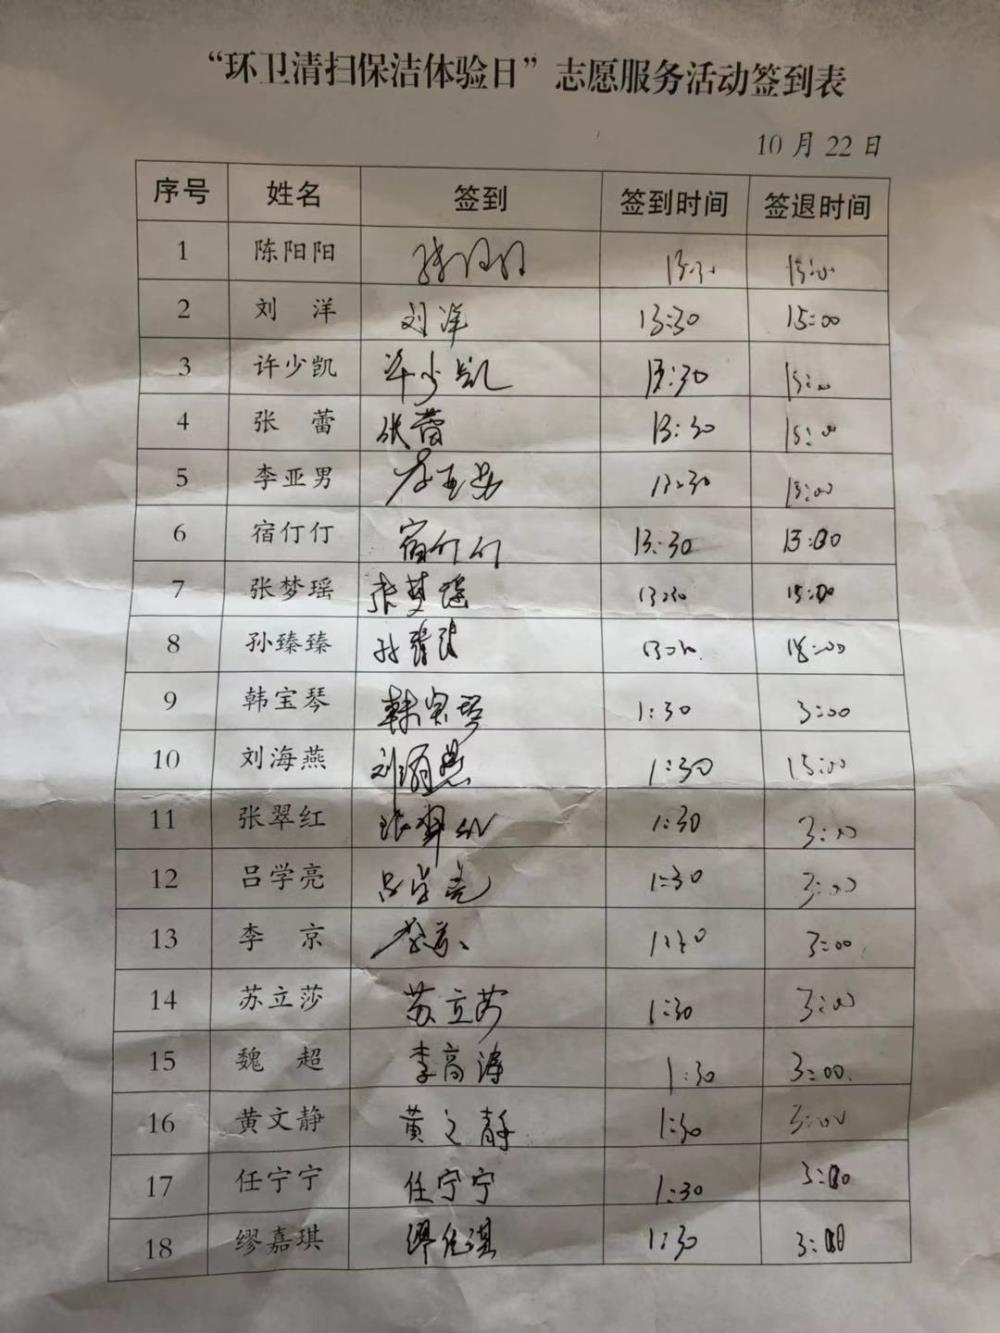 “环卫清扫保洁体验日”志愿服务活动签到表
10月22日
序号 姓名 签到 签到时间 签退时间
1 陈阳阳 陈阳阳 13:30 15:00
2 刘洋 刘洋 13:30 15:00
3 许少凯 许少凯 13:30 15:00
4 张蕾 张蕾 13:30 15:00
5 李亚男 李亚男 13:30 15:00
6 宿仃仃 宿仃仃 13:30 15:00
7 张梦瑶 张梦瑶 13:30 15:00
8 孙臻臻 孙臻臻 13:30 15:00
9 韩宝琴 韩宝琴 1:30 3:00
10 刘海燕 刘海燕 1:30 15:00
11 张翠红 张翠红 1:30 3:00
12 吕学亮 吕学亮 1:30 3:00
13 李京 李京 1:30 3:00
14 苏立莎 苏立莎 1:30 3:00
15 魏超 李高涛 1:30 3:00
16 黄文静 黄文静 1:30 3:00
17 任宁宁 任宁宁 1:30 3:00
18 缪嘉琪 1:30 3:00